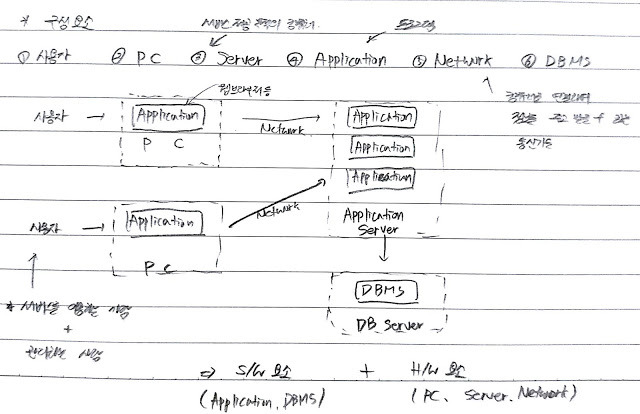 * 구성요소
서비스 제공 목적의 컴퓨터
프로그램
① 사용자 ② PC ③ Server ④ Application ⑤ Network ⑥ DBMS
웹브라우저 등
사용자 → Application
Network
Application
P C
Application
Application
컴퓨터를 연결하여
정보를 주고 받을 수 있는
통신기능
사용자 → Application
Network
PC
Application
Server
DBMS
DB Server
* 서비스를 이용하는 사람
+
관리하는 사람
⇒ S/W 요소 + H/W 요소
(Application, DBMS) (PC, Server, Network)